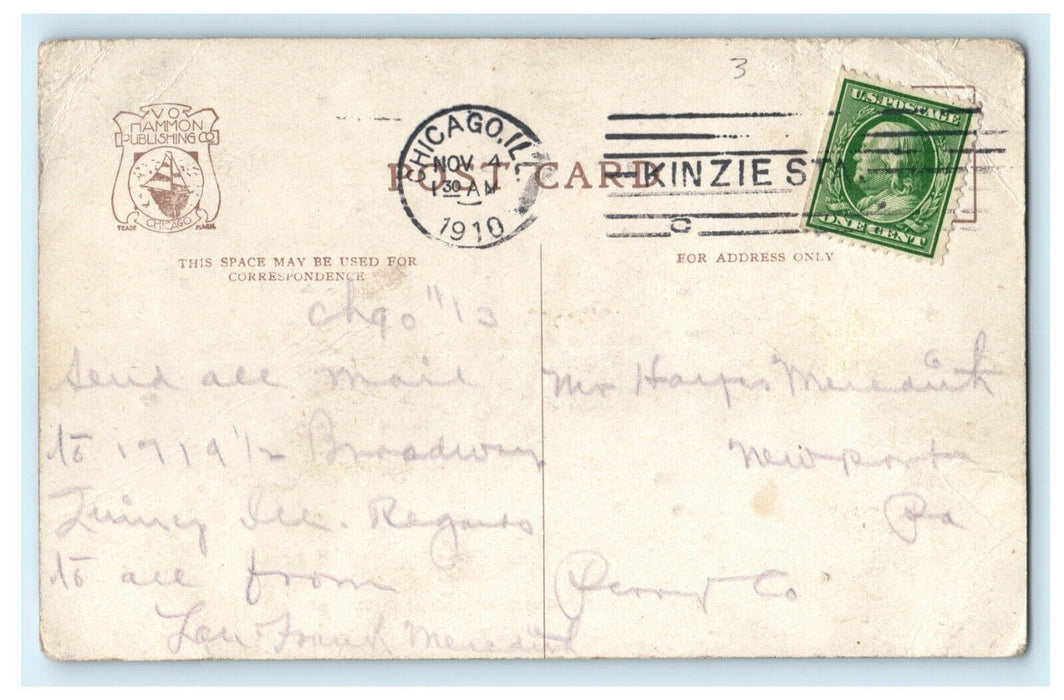 3
V O
HAMMON
PUBLISHING CO
CHICAGO
TRADE MARK
CHICAGO, ILL
NOV 4
1 30 AM
1910
POST CARD
KINZIE STA
U.S. POSTAGE
ONE CENT
THIS SPACE MAY BE USED FOR
CORRESPONDENCE
FOR ADDRESS ONLY
Chgo 11/3
Send all mail
to 1919 1/2 Broadway
Quincy Ill. Regards
to all from
Frank Meredith
Mr Harper Meredith
Newport
Pa
Perry Co